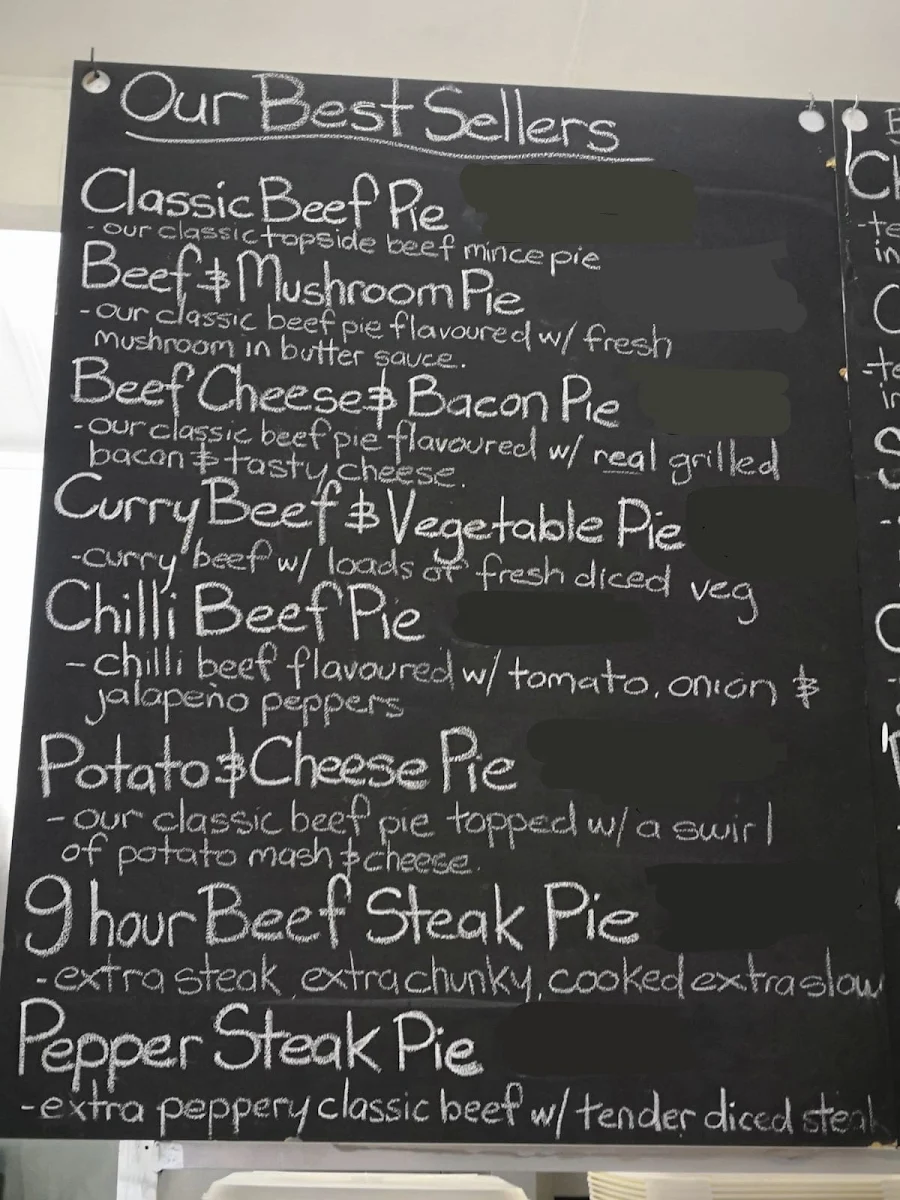 Our Best Sellers
Classic Beef Pie
- our classic topside beef mince pie
Beef & Mushroom Pie
- our classic beef pie flavoured w/ fresh
mushroom in butter sauce.
Beef Cheese & Bacon Pie
- our classic beef pie flavoured w/ real grilled
bacon & tasty cheese.
Curry Beef & Vegetable Pie
- curry beef w/ loads of fresh diced veg
Chilli Beef Pie
- chilli beef flavoured w/ tomato, onion &
jalapeño peppers
Potato & Cheese Pie
- our classic beef pie topped w/ a swirl
of potato mash & cheese.
9 hour Beef Steak Pie
- extra steak, extra chunky, cooked extra slow
Pepper Steak Pie
- extra peppery classic beef w/ tender diced steak